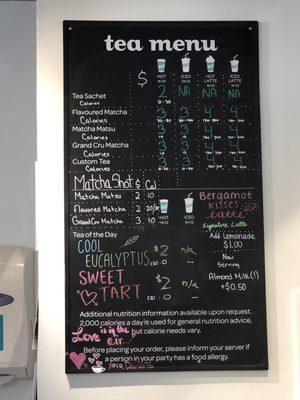 tea menu
$ HOT ICED HOT LATTE ICED LATTE
Tea Sachet 2 NA NA NA
Calories
Flavoured Matcha 3 3 4 4
Calories
Matcha Matsu 3 3 4 4
Calories
Grand Cru Matcha 3 3 4 4
Calories
Custom Tea 3 3 4 4
Calories
Matcha Shot $ Cal
Matcha Matsu 2 10
Flavored Matcha 2
Grand Cru Matcha 3 10
HOT ICED
Bergamot
Kisses
Latte
Signature Latte
Add Lemonade
$1.00
Now
Serving
Almond Milk(!)
+$0.50
Tea of the Day
COOL
EUCALYPTUS $2 n/a
cal 0 -
SWEET $2 n/a
TART
cal 0 -
Additional nutrition information available upon request.
2,000 calories a day is used for general nutrition advice,
but calorie needs vary.
Love is in the
air...
Before placing your order, please inform your server if
a person in your party has a food allergy.